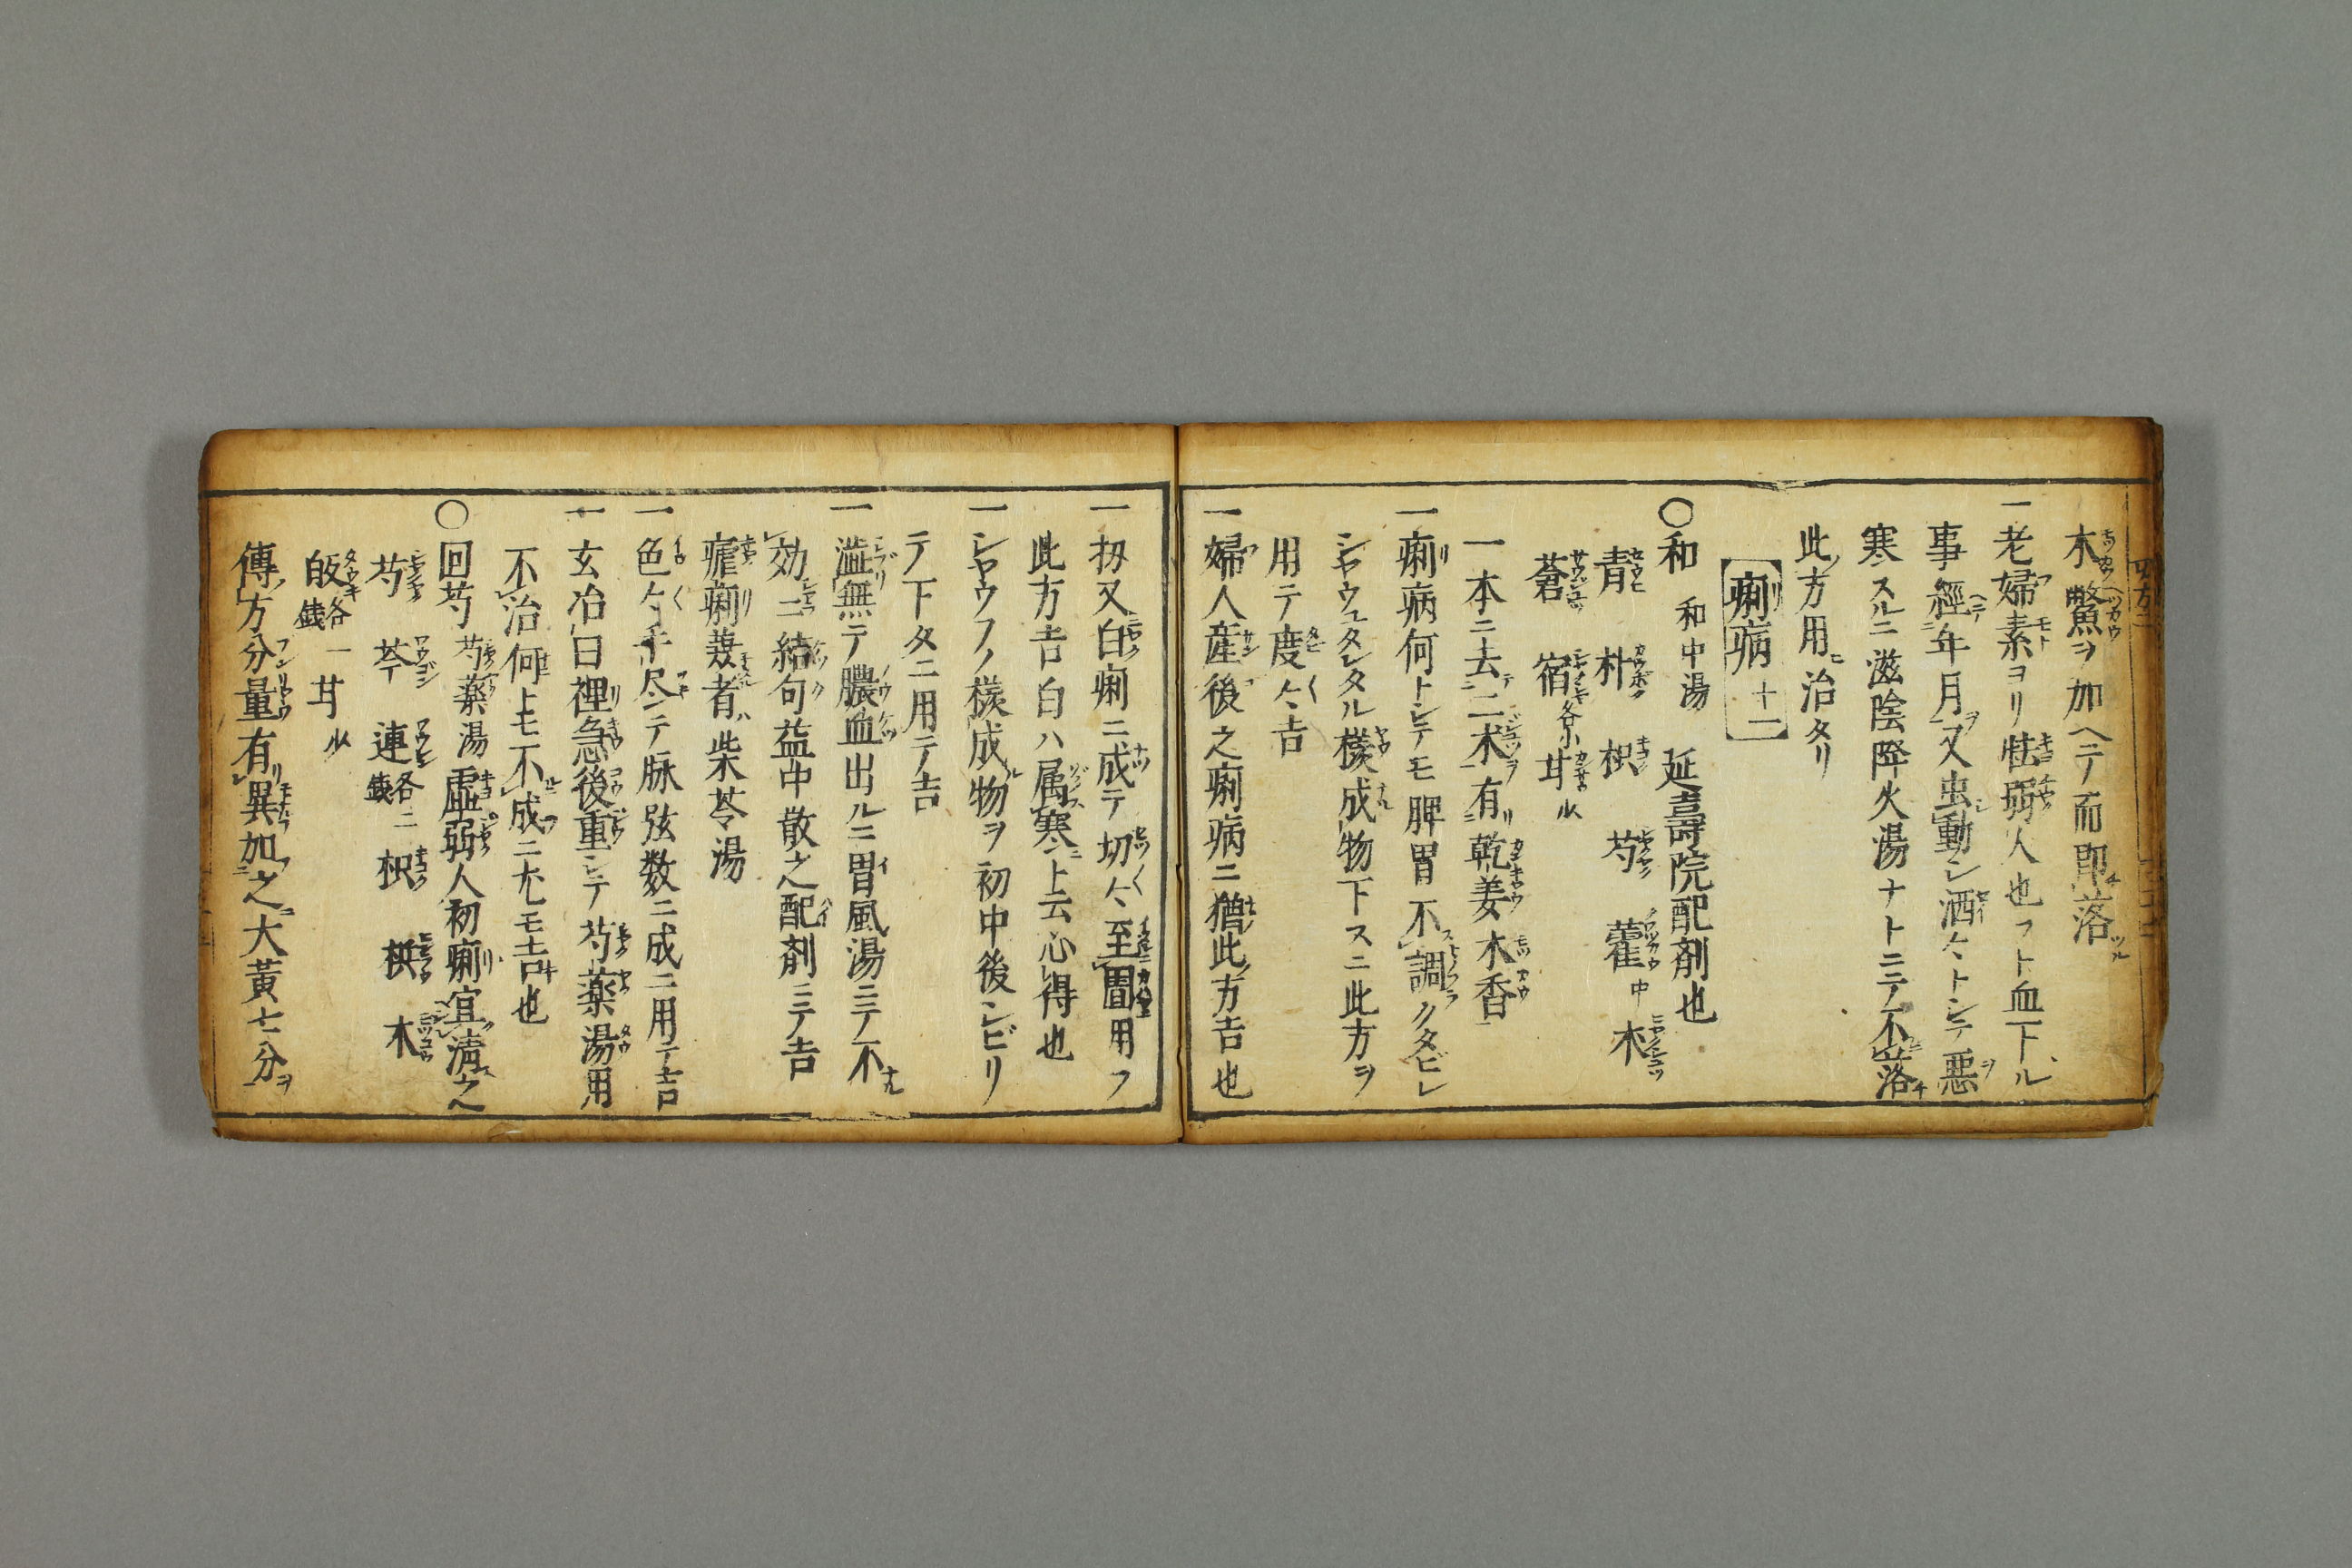 木鱉魚ヲ加ヘテ而即落
一老婦素ヨリ怯弱人也フト血下ル
事經年月又虫動シ洒〻トシテ悪
寒スルニ滋陰降火湯ナトニテ不落
此方用治タリ
痢病 十一
○和 和中湯 延壽院配剤也
青 朴 枳 芍 藿中 木
蒼 宿各 甘
一本ニ去二朮有乾姜木香
一痢病何トシテモ脾胃不調クタビレ
シヤウユタレタル様成物下スニ此方ヲ
用テ度〻吉
一婦人産後之痢病ニ猶此方吉也
一扨又白痢ニ成テ切〻至圊用フ
此方吉白ハ属寒ト云心得也
一シヤウフノ様成物ヲ初中後シビリ
テ下タニ用テ吉
一澁無テ膿血出ルニ胃風湯ニテ不
効ニ結句益中散之配剤ニテ吉
瘧痢兼者ハ柴苓湯
一色〻手尽シテ脉弦数ニ成ニ用テ吉
一玄冶曰裡急後重シテ芍薬湯用
不治何トモ不成ニ尤モ吉也
○回芍 芍薬湯 虚弱人初痢宜清之
芍 芩 連各二銭 枳 梹 木
皈各一銭 甘
傳方分量有異加之大黄七分